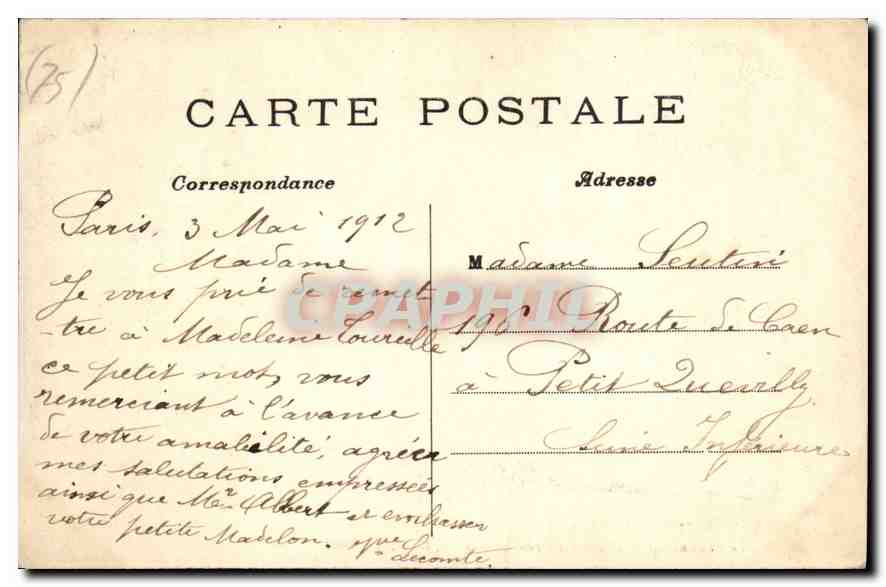 (75)
CARTE POSTALE
Correspondance
Paris, 3 Mai 1912
Madame
Je vous prie de remet
-tre à Madeleine Tourelle
ce petit mot, vous
remerciant à l'avance
de votre amabilité, agréer
mes salutations empressées
ainsi que Mr Albert et embrasser
votre petite Madelon.
Lecomte.
Adresse
Madame
196 Route de Caen
à Petit Quevilly
Seine Inférieure
CPAPHIL